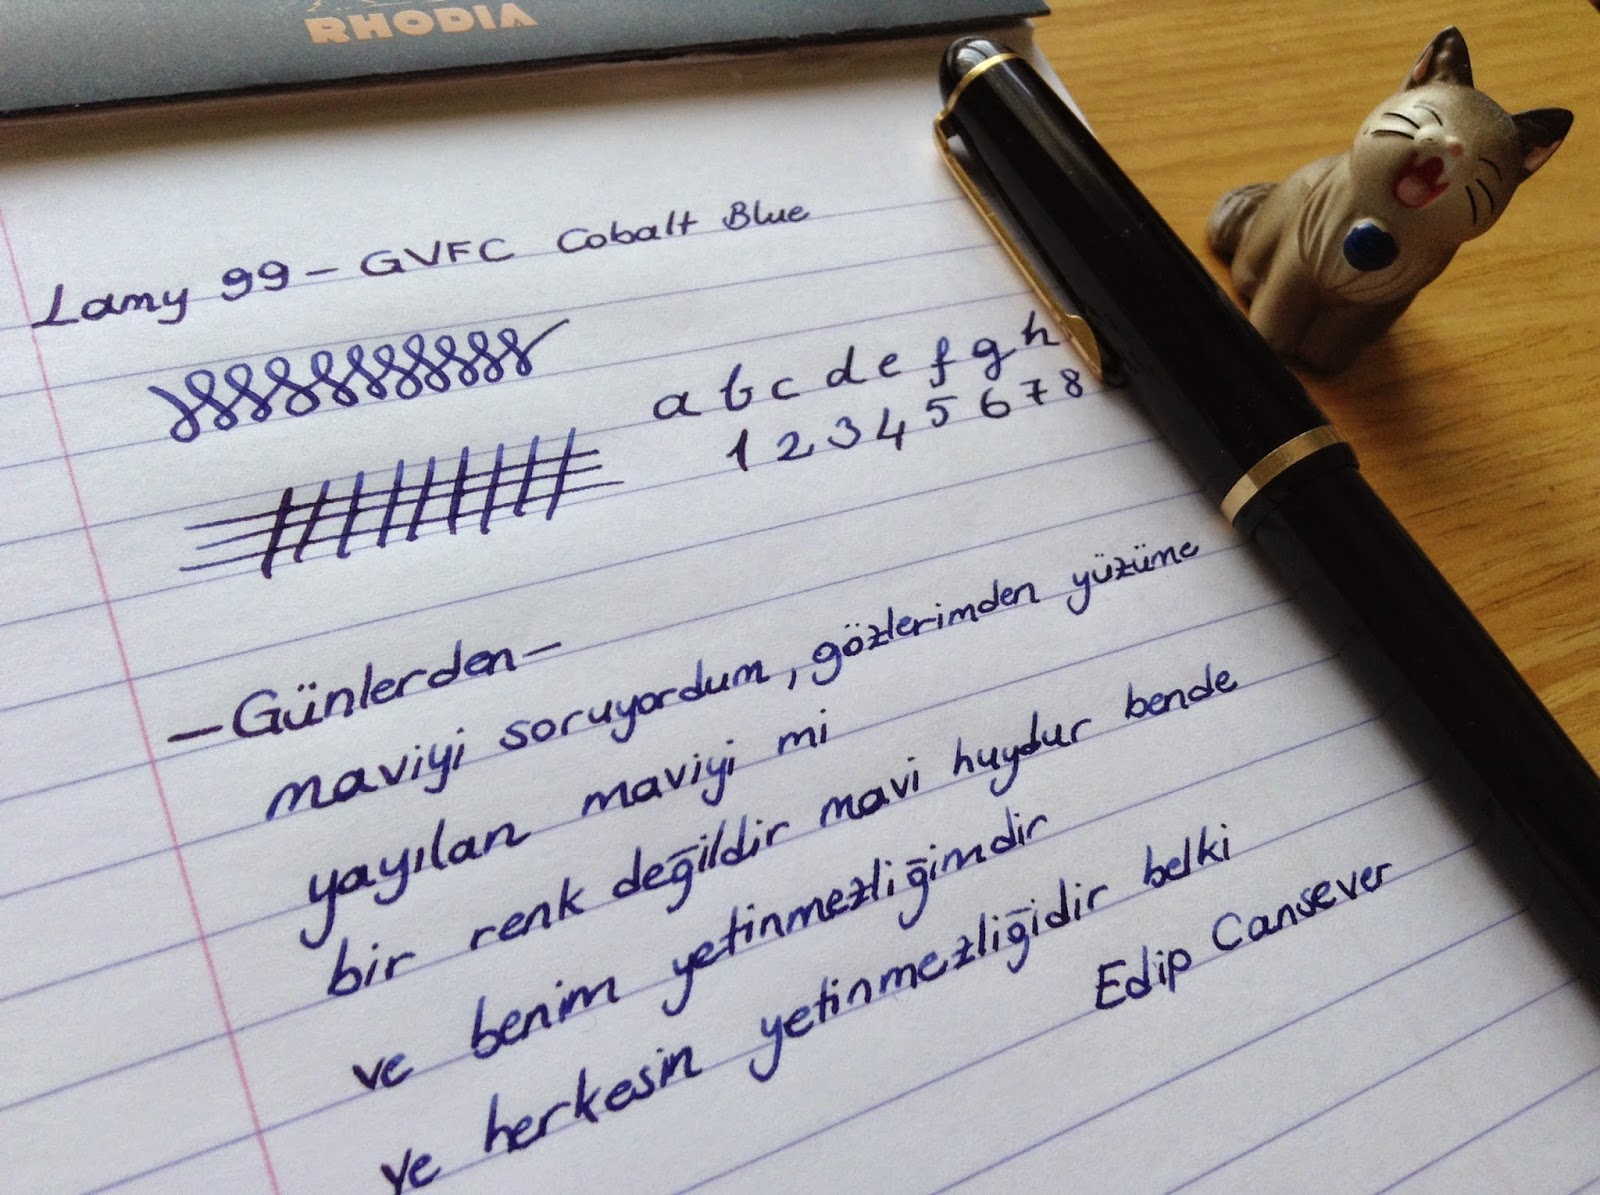 RHODIA
Lamy 99 - GVFC Cobalt Blue
a b c d e f g h
1 2 3 4 5 6 7 8
- Günlerden -
maviyi soruyordum, gözlerimden yüzüme
yayılan maviyi mi
bir renk değildir mavi huydur bende
ve benim yetinmezliğimdir
ve herkesin yetinmezliğidir belki
Edip Cansever